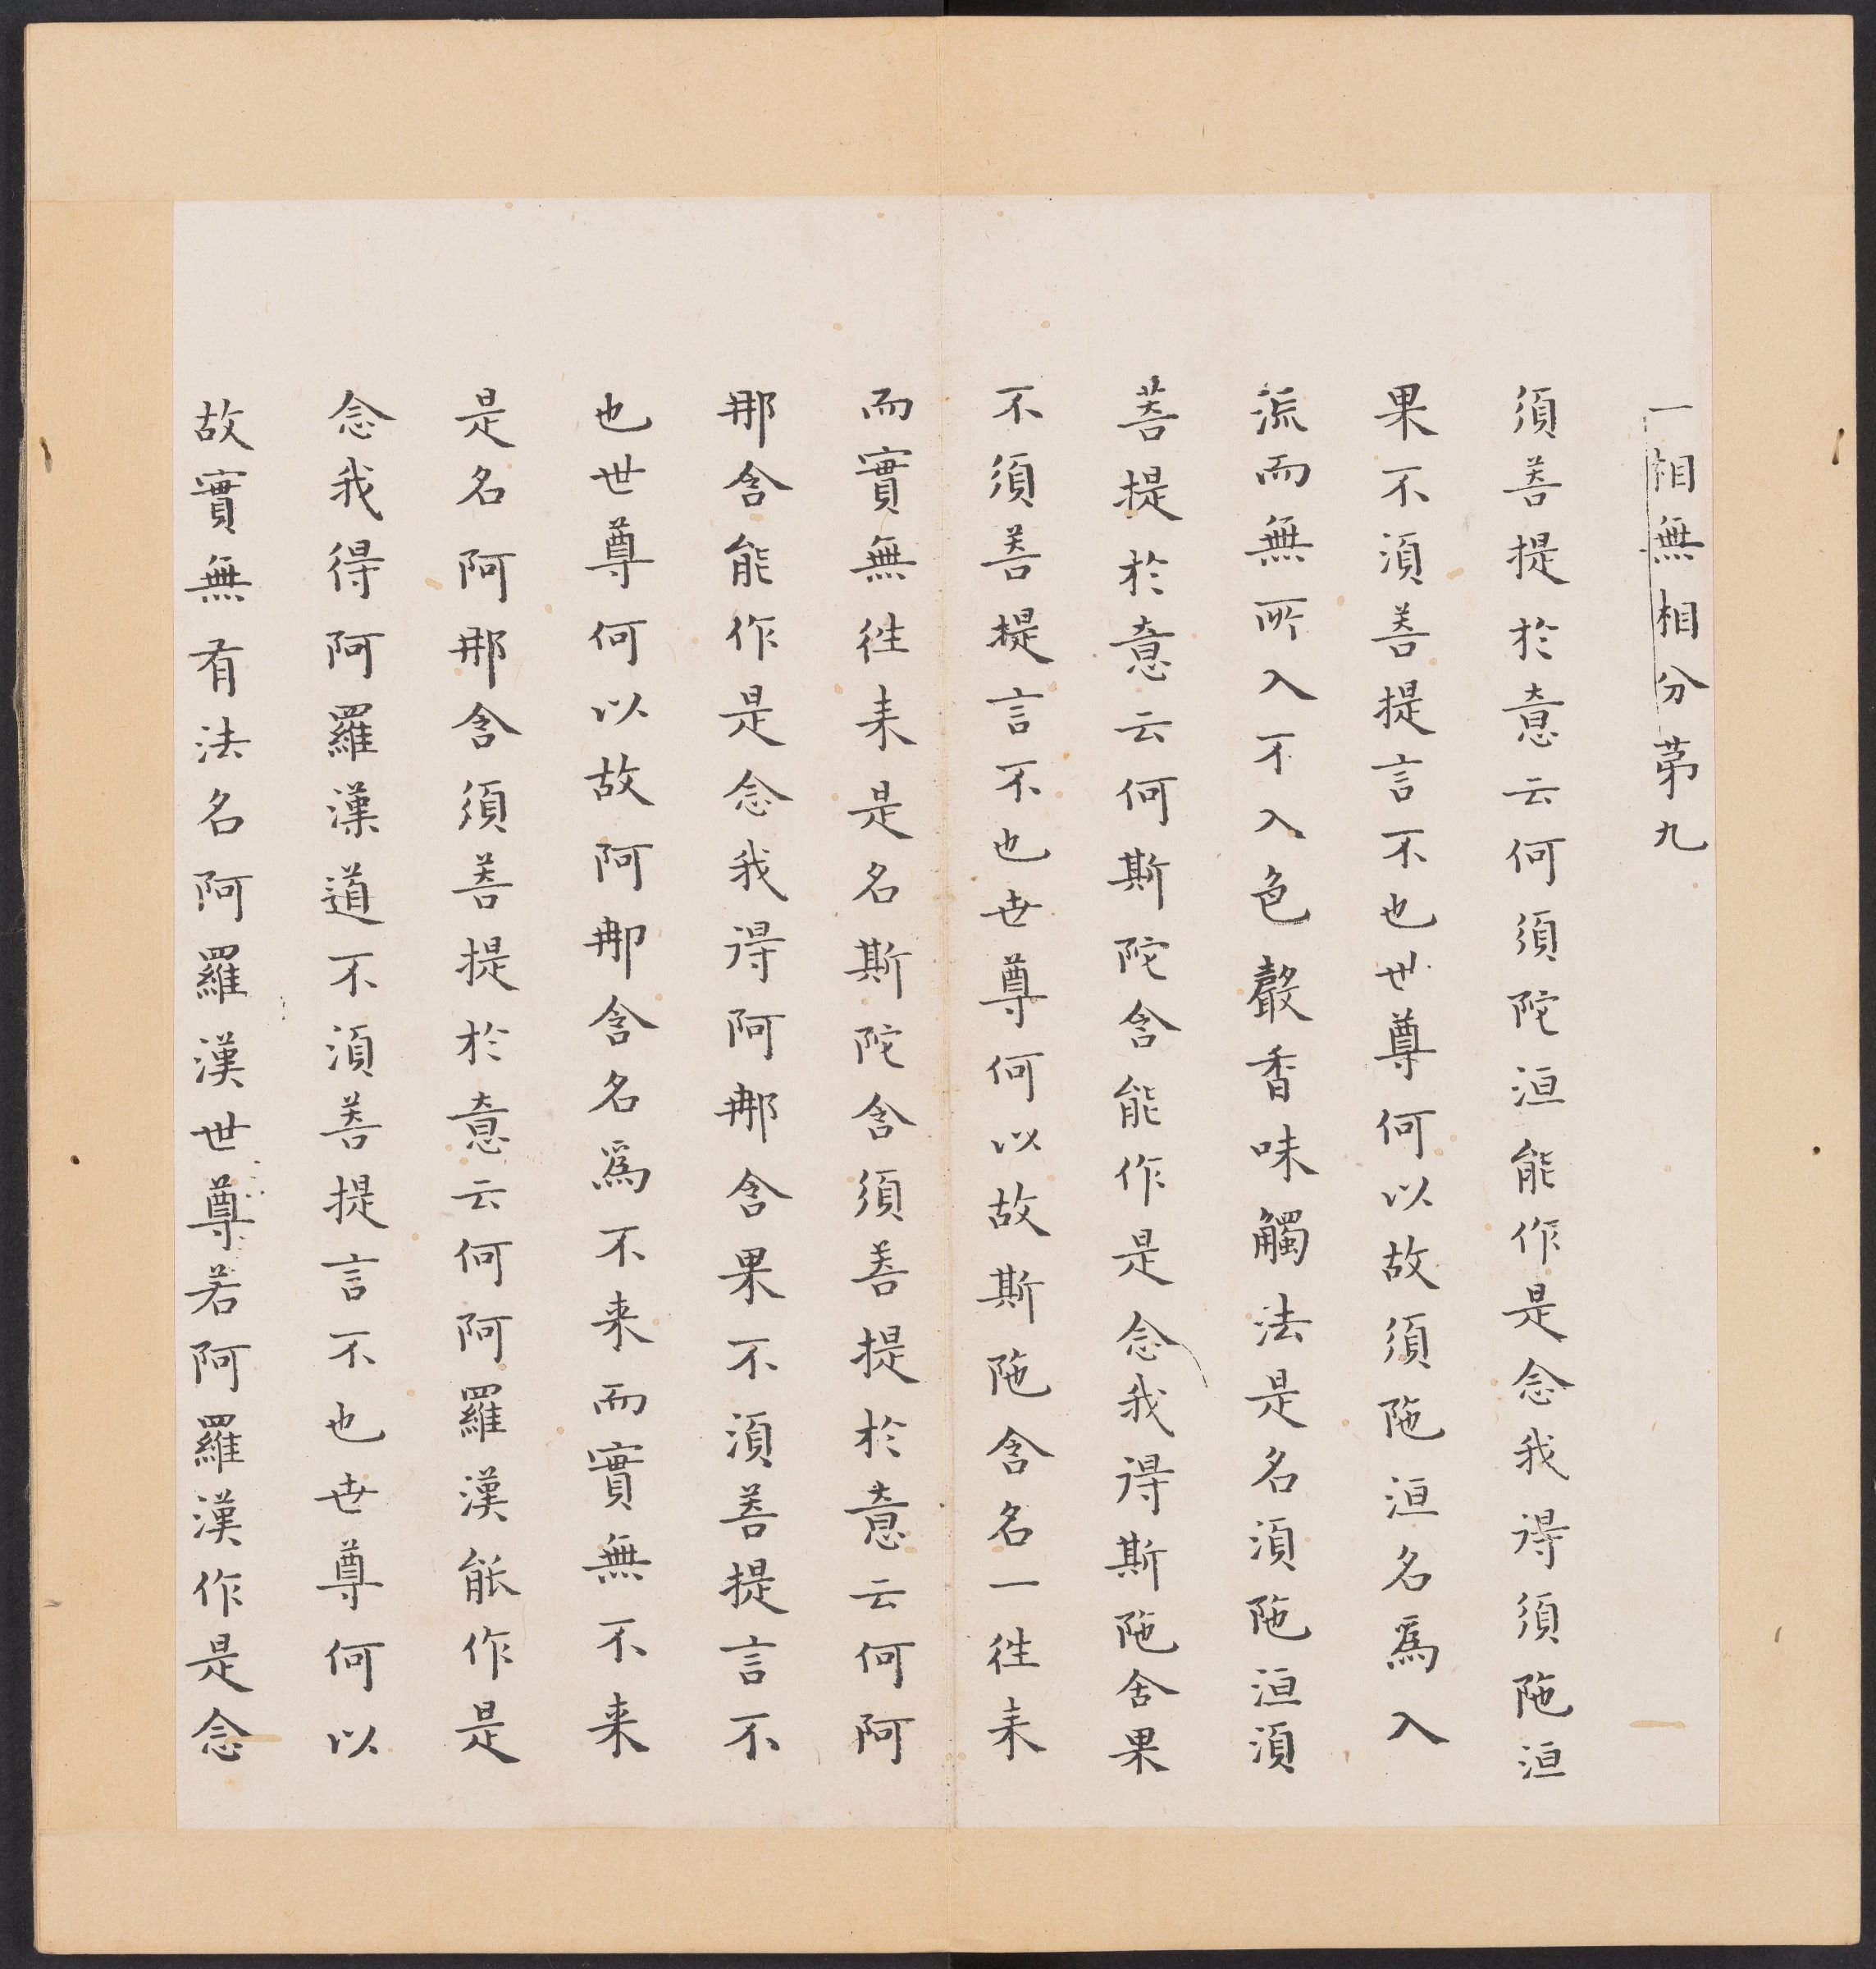 一相無相分苐九
須菩提於意云何須陀洹能作是念我得須陁洹
果不須菩提言不也世尊何以故須陁洹名爲入
流而無所入不入色聲香味觸法是名須陁洹須
菩提於意云何斯陀含能作是念我得斯陁含果
不須菩提言不也世尊何以故斯陁含名一往来
而實無往来是名斯陀含須菩提於意云何阿
那含能作是念我得阿那含果不須菩提言不
也世尊何以故阿那含名爲不来而實無不来
是名阿那含須菩提於意云何阿羅漢能作是
念我得阿羅漢道不須菩提言不也世尊何以
故實無有法名阿羅漢世尊若阿羅漢作是念